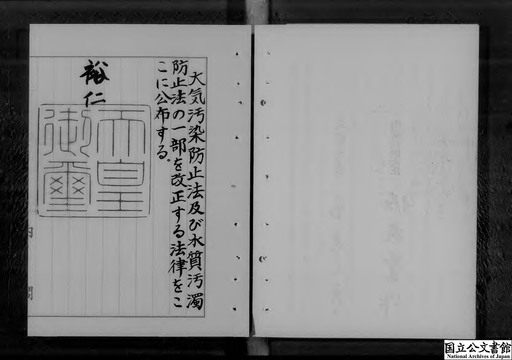 大気汚染防止法及び水質汚濁
防止法の一部を改正する法律をこ
こに公布する。
裕仁
天皇
御璽
国立公文書館
National Archives of Japan